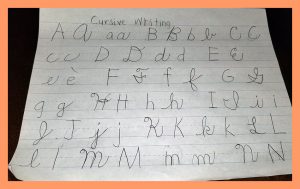 Cursive Writing
A a a a B B b b C C
c c D D d d E E
e è F F f f G G
g g H H h h I I i i
J J j j K K k k L L
l l M M m m n N